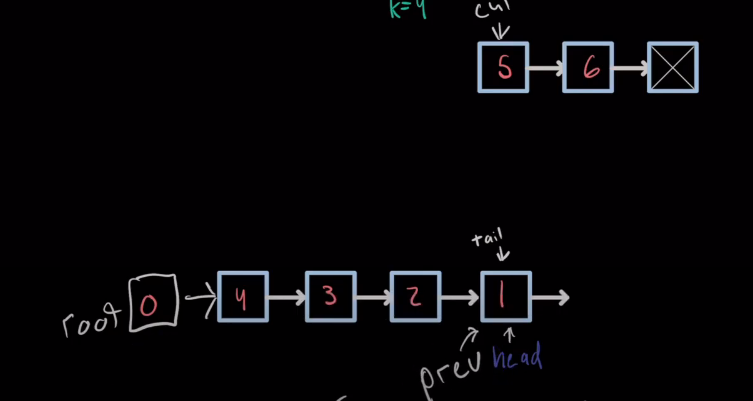 k=4
cur
5 6
tail
root 0 4 3 2 1
prev head